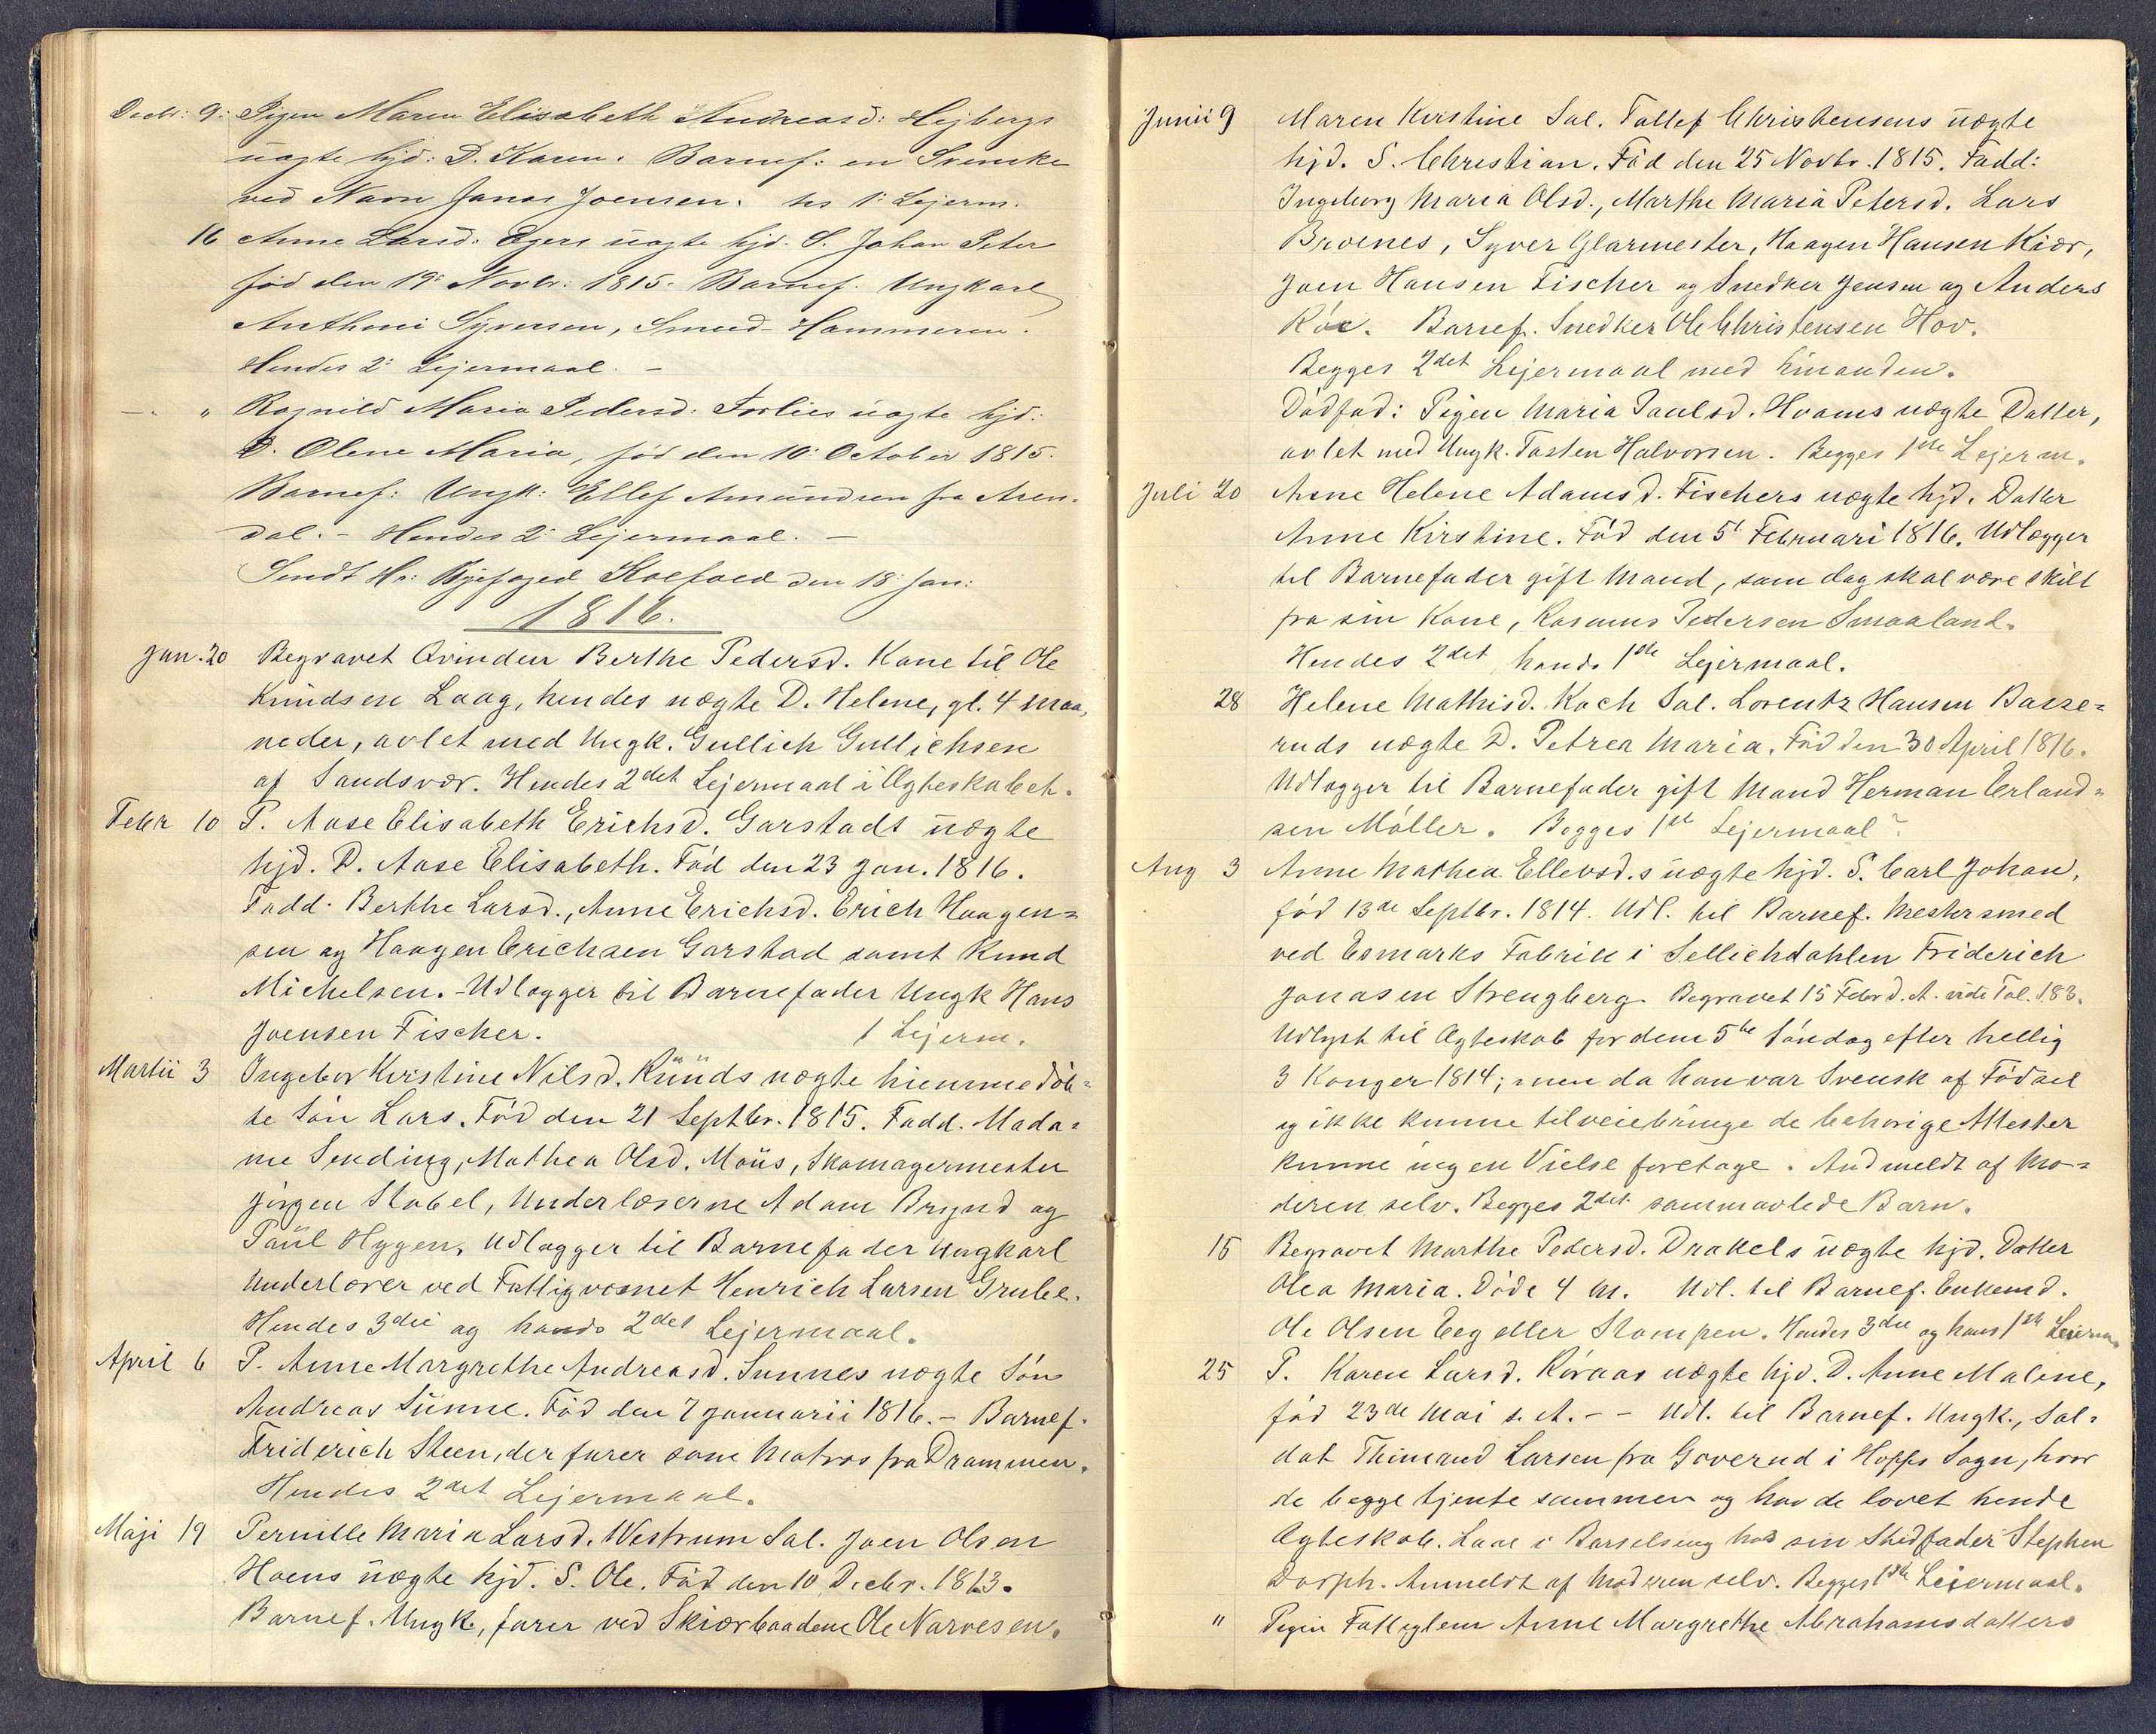 Decbr: 9. Pigen Maren Elisabeth Andreasd: Hejbergs
uægte hjd: D. Karen. Barnef: en Svenske
ved Navn Jonas Joensen. hs 1: Lejerm.
16 Anne Larsd: Egers uægte hjd. S. Johan Peter
fød den 19: Novbr: 1815. Barnef. Ungkarl
Anthoni Syversen, Smed-Hammeren.
Hendes 2: Lejermaal. –
–. " Ragnild Maria Pedersd: Forlies uægte hjd:
D. Olene Maria, fød den 10: October 1815.
Barnef: Ungk: Ellef Amundsen fra Aren-
dal. – Hendes 2: Lejermaal. –
Sendt Hr: Byefoged Koefoed den 18: Jan:
1816.
Jan. 20 Begravet Qvinden Berthe Pedersd. Kone til Ole
Knudsen Laag, hendes uægte D. Helene, gl. 4 Maa,
neder, avlet med Ungk. Gullich Gullichsen
af Sandsvær. Hendes 2det Lejermaal i Ægteskabet.
Febr 10 P. Aase Elisabeth Erichsd. Garstads uægte
hjd. D. Aase Elisabeth. Fød den 23 Jan. 1816.
Fadd. Berthe Larsd., Anne Erichsd. Erich Haagen=
sen og Haagen Erichsen Garstad samt Knud
Michelsen. – Udlægger til Barnefader Ungk Hans
Joensen Fischer. 1 Lejerm.
Martii 3 Ingebor Kirstine Nilsd. Kruuds uægte hiemmedøb=
te Søn Lars. Fød den 21 Septbr. 1815. Fadd. Mada=
me Sending, Mathea Olsd. Moüs, Skomagermester
Jørgen Stabel, Underlæserne Adam Brynd og
Paül Hygen, Udlægger til Barnefader Ungkarl
Underlærer ved Fattigvæsnet Henrich Larsen Grube.
Hendes 3die og hands 2det Lejermaal.
April 6 P. Anne Margrethe Andreasd. Sunnes uægte Søn
Andreas Sünne. Fød den 7 Januarii 1816. – Barnef.
Friderich Steen, der farer som Matros fra Drammen.
Hendes 2det Lejermaal.
Maji 19 Pernille Maria Larsd. Westrum Sal. Joen Olsen
Hoens uægte hjd. S. Ole. Fød den 10 Decbr. 1813.
Barnef. Ungk., farer ved Skiærbaadene Ole Narvesen.
Junii 9 Maren Kirstine Sal. Tollef Christensens uægte
hjd. S. Christian. Fød den 25 Novbr. 1815. Fadd:
Ingeborg Maria Olsd., Marthe Maria Petersd. Lars
Bronæs, Syver Glarmester, Haagen Hansen Kiær,
Joen Hansen Fischer og Snedker Jensen og Anders
Barnef. Snedker Ole Christensen Hov.
Begges 2det Lejermaal med hinanden.
Dødfød: Pigen Maria Paulsd. Hvams uægte Datter,
avlet med Ungk. Tosten Halvorsen. Begges 1ste Lejerm.
Juli 20 Anne Helene Adamsd. Fischers uægte hjd. Datter
Anne Kirstine. Fød den 5t Februari 1816. Udlægger
til Barnefader gift Mand, som dog skal være skilt
fra sin Kone, Rasmus Pedersen Smaaland.
Hendes 2det hands 1ste Lejermaal.
28 Helene Mathisd. Koch Sal. Lorentz Hansen Basse=
ruds uægte D. Petrea Maria. Fød den 30 April 1816.
Udlægger til Barnefader gift Mand Herman Erland=
sen Møller. Begges 1ste Lejermaal?
Aug 3 Anne Mathea Ellevsd.s uægte hjd. S. Carl Johan,
fød 13de Septbr. 1814. Udl. til Barnef. Mestersmed
ved Esmarks Fabrik i Sellichdahlen Friderich
Jonasen Strengberg. Begravet 15 Febr d. A. vide Fol. 183.
Udlyst til Ægteskab for dem 5te Søndag efter hellig
3 Konger 1814; men da han var Svensk af Fødsel
og ikke kunne tilveiebringe de behørige Attester
kunne ingen Vielse foretage. Andmeldt af Mo=
deren selv. Begges 2det sammavlede Barn.
15 Begravet Marthe Pedersd. Drakels uægte hjd. Datter
Olea Maria. Døde 4 M. Udl. til Barnef. Enkemd.
Ole Olsen Eeg eller Stampen. Hendes 3die og hans 1ste Leierm.
25 P. Karen Larsd. Røraas uægte hjd. D. Anne Malene,
fød 23de Mai s. A. – – Udl. til Barnef. Ungk., Sol=
dat Thimand Larsen fra Goverud i Hoffs Sogn, hvor
de begge tjente sammen og havde lovet hende
Ægteskab. Laae i Barselseng hos sin Stedfader Stephen
Dorph. Anmeldt af Moderen selv. Begges 1ste Leiermaal.
" Pigen Fattiglem Anne Margrethe Abrahamsdatters